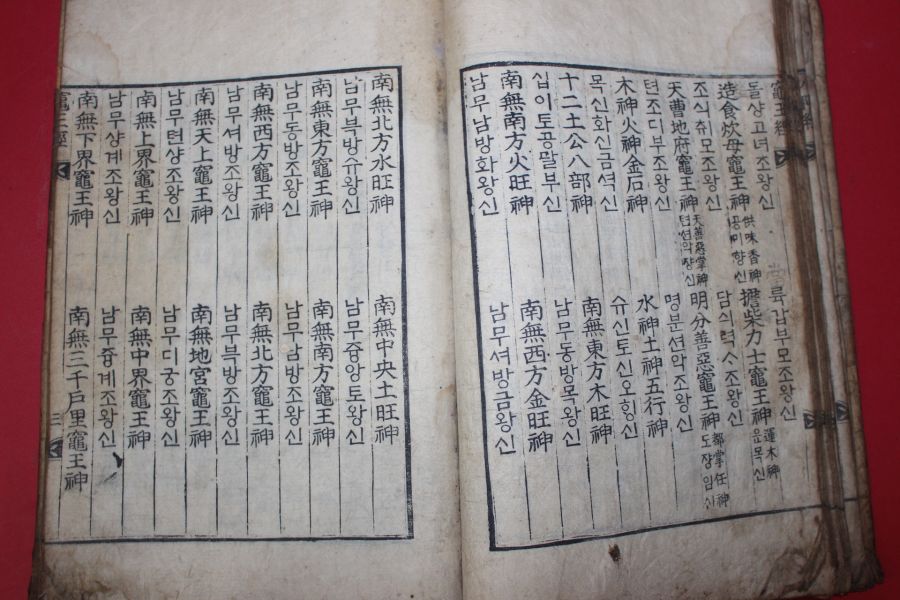 竈王經
돌샹고녀조왕신 륙갑부모조왕신
造食炊母竈王神 供味香神 공미향신 擔柴力士竈王神 運木神 운목신
조식취모조왕신 담싀력ᄉ조왕신
天曹地府竈王神 天善惡掌神 텬션악쟝신 明分善惡竈王神 都掌任神 도쟝임신
텬조디부조왕신 명분션악조왕신
木神火神金石神 水神土神五行神
목신화신금셕신 슈신토신오힝신
十二土公八部神 南無東方木旺神
십이토공팔부신 남무동방목왕신
南無南方火旺神 南無西方金旺神
남무남방화왕신 남무셔방금왕신
南無北方水旺神 南無中央土旺神
남무북방슈왕신 남무즁앙토왕신
南無東方竈王神 南無南方竈王神
남무동방조왕신 남무남방조왕신
南無西方竈王神 南無北方竈王神
남무셔방조왕신 남무븍방조왕신
南無天上竈王神 南無地宮竈王神
남무텬샹조왕신 남무디궁조왕신
南無上界竈王神 南無中界竈王神
남무샹계조왕신 남무즁계조왕신
南無下界竈王神 南無三千戶里竈王神
竈王經 三